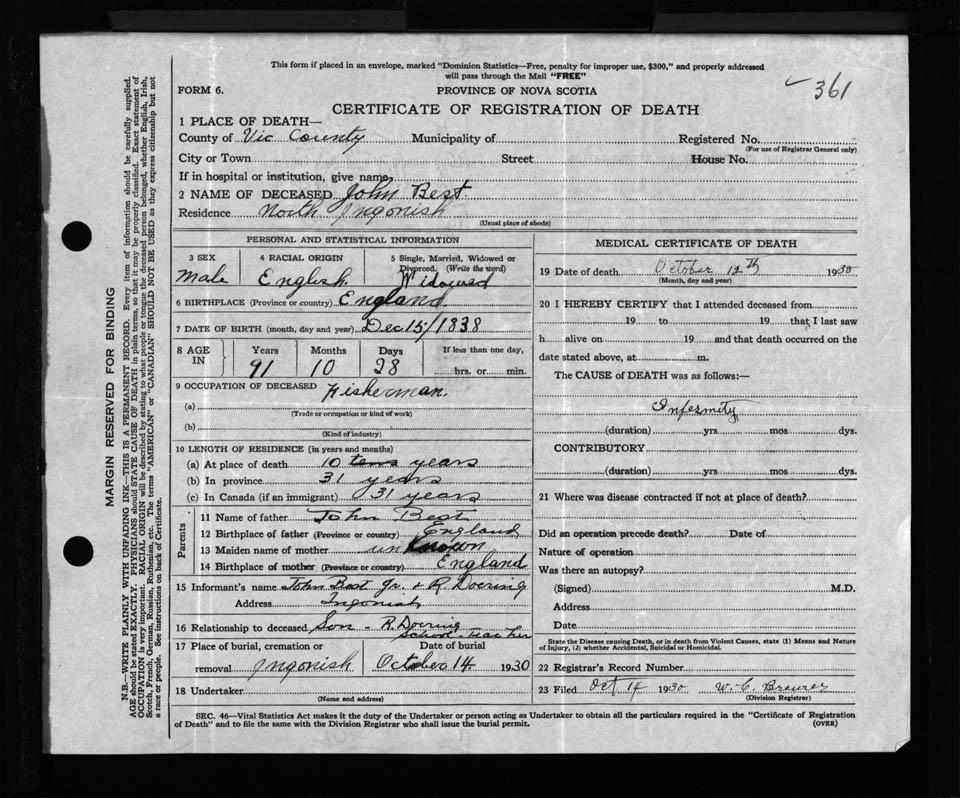 This form if placed in an envelope, marked "Dominion Statistics—Free, penalty for improper use, $300," and properly addressed
will pass through the Mail "FREE"
361
FORM 6.
PROVINCE OF NOVA SCOTIA
CERTIFICATE OF REGISTRATION OF DEATH
1 PLACE OF DEATH—
County of Vic County Municipality of Registered No.
(For use of Registrar General only)
City or Town Street House No.
If in hospital or institution, give name
2 NAME OF DECEASED John Best.
Residence North Ingonish
(Usual place of abode)
PERSONAL AND STATISTICAL INFORMATION
3 SEX 4 RACIAL ORIGIN 5 Single, Married, Widowed or
Divorced. (Write the word)
Male English Widowed
6 BIRTHPLACE (Province or country) England
7 DATE OF BIRTH (month, day and year) Dec 15/1838
8 AGE IN Years Months Days If less than one day,
91 10 28 hrs. or min.
9 OCCUPATION OF DECEASED Fisherman.
(a)
(Trade or occupation or kind of work)
(b)
(Kind of industry)
10 LENGTH OF RESIDENCE (in years and months)
(a) At place of death 10 years
(b) In province 31 years
(c) In Canada (if an immigrant) 31 years
Parents
11 Name of father John Best
12 Birthplace of father (Province or country) England
13 Maiden name of mother unknown
14 Birthplace of mother (Province or country) England
15 Informant's name John Best Jr. & R. Doering
Address Ingonish
16 Relationship to deceased Son - R. Doering
School-teacher
17 Place of burial, cremation or Date of burial
removal Ingonish October 14 1930
18 Undertaker
(Name and address)
MEDICAL CERTIFICATE OF DEATH
19 Date of death October 12th 1930
(Month, day and year)
20 I HEREBY CERTIFY that I attended deceased from
19 to 19 that I last saw
h alive on 19 and that death occurred on the
date stated above, at m.
The CAUSE of DEATH was as follows:—
Infermity
(duration) yrs mos dys.
CONTRIBUTORY
(duration) yrs. mos. dys.
21 Where was disease contracted if not at place of death?
Did an operation precede death? Date of
Nature of operation
Was there an autopsy?
(Signed) M.D.
Address
Date
State the Disease causing Death, or in death from Violent Causes, state (1) Means and Nature
of Injury, (2) whether Accidental, Suicidal or Homicidal.
22 Registrar's Record Number
23 Filed Oct 14 1930 W. C. Brewer
(Division Registrar)
SEC. 46—Vital Statistics Act makes it the duty of the Undertaker or person acting as Undertaker to obtain all the particulars required in the "Certificate of Registration
of Death" and to file the same with the Division Registrar who shall issue the burial permit.
(OVER)
MARGIN RESERVED FOR BINDING
N.B.—WRITE PLAINLY WITH UNFADING INK—THIS IS A PERMANENT RECORD. Every item of information should be carefully supplied.
AGE should be stated EXACTLY. PHYSICIANS should STATE CAUSE OF DEATH in plain terms, so that it may be properly classified. Exact statement of
OCCUPATION is very important. RACIAL ORIGIN will be described by stating to what people or tongue the deceased person belonged, whether English, Irish,
Scotch, French, German, Russian, Ruthenian, etc. The terms "AMERICAN" or "CANADIAN" SHOULD NOT BE USED as they express citizenship but not
a race or people. See instructions on back of Certificate.